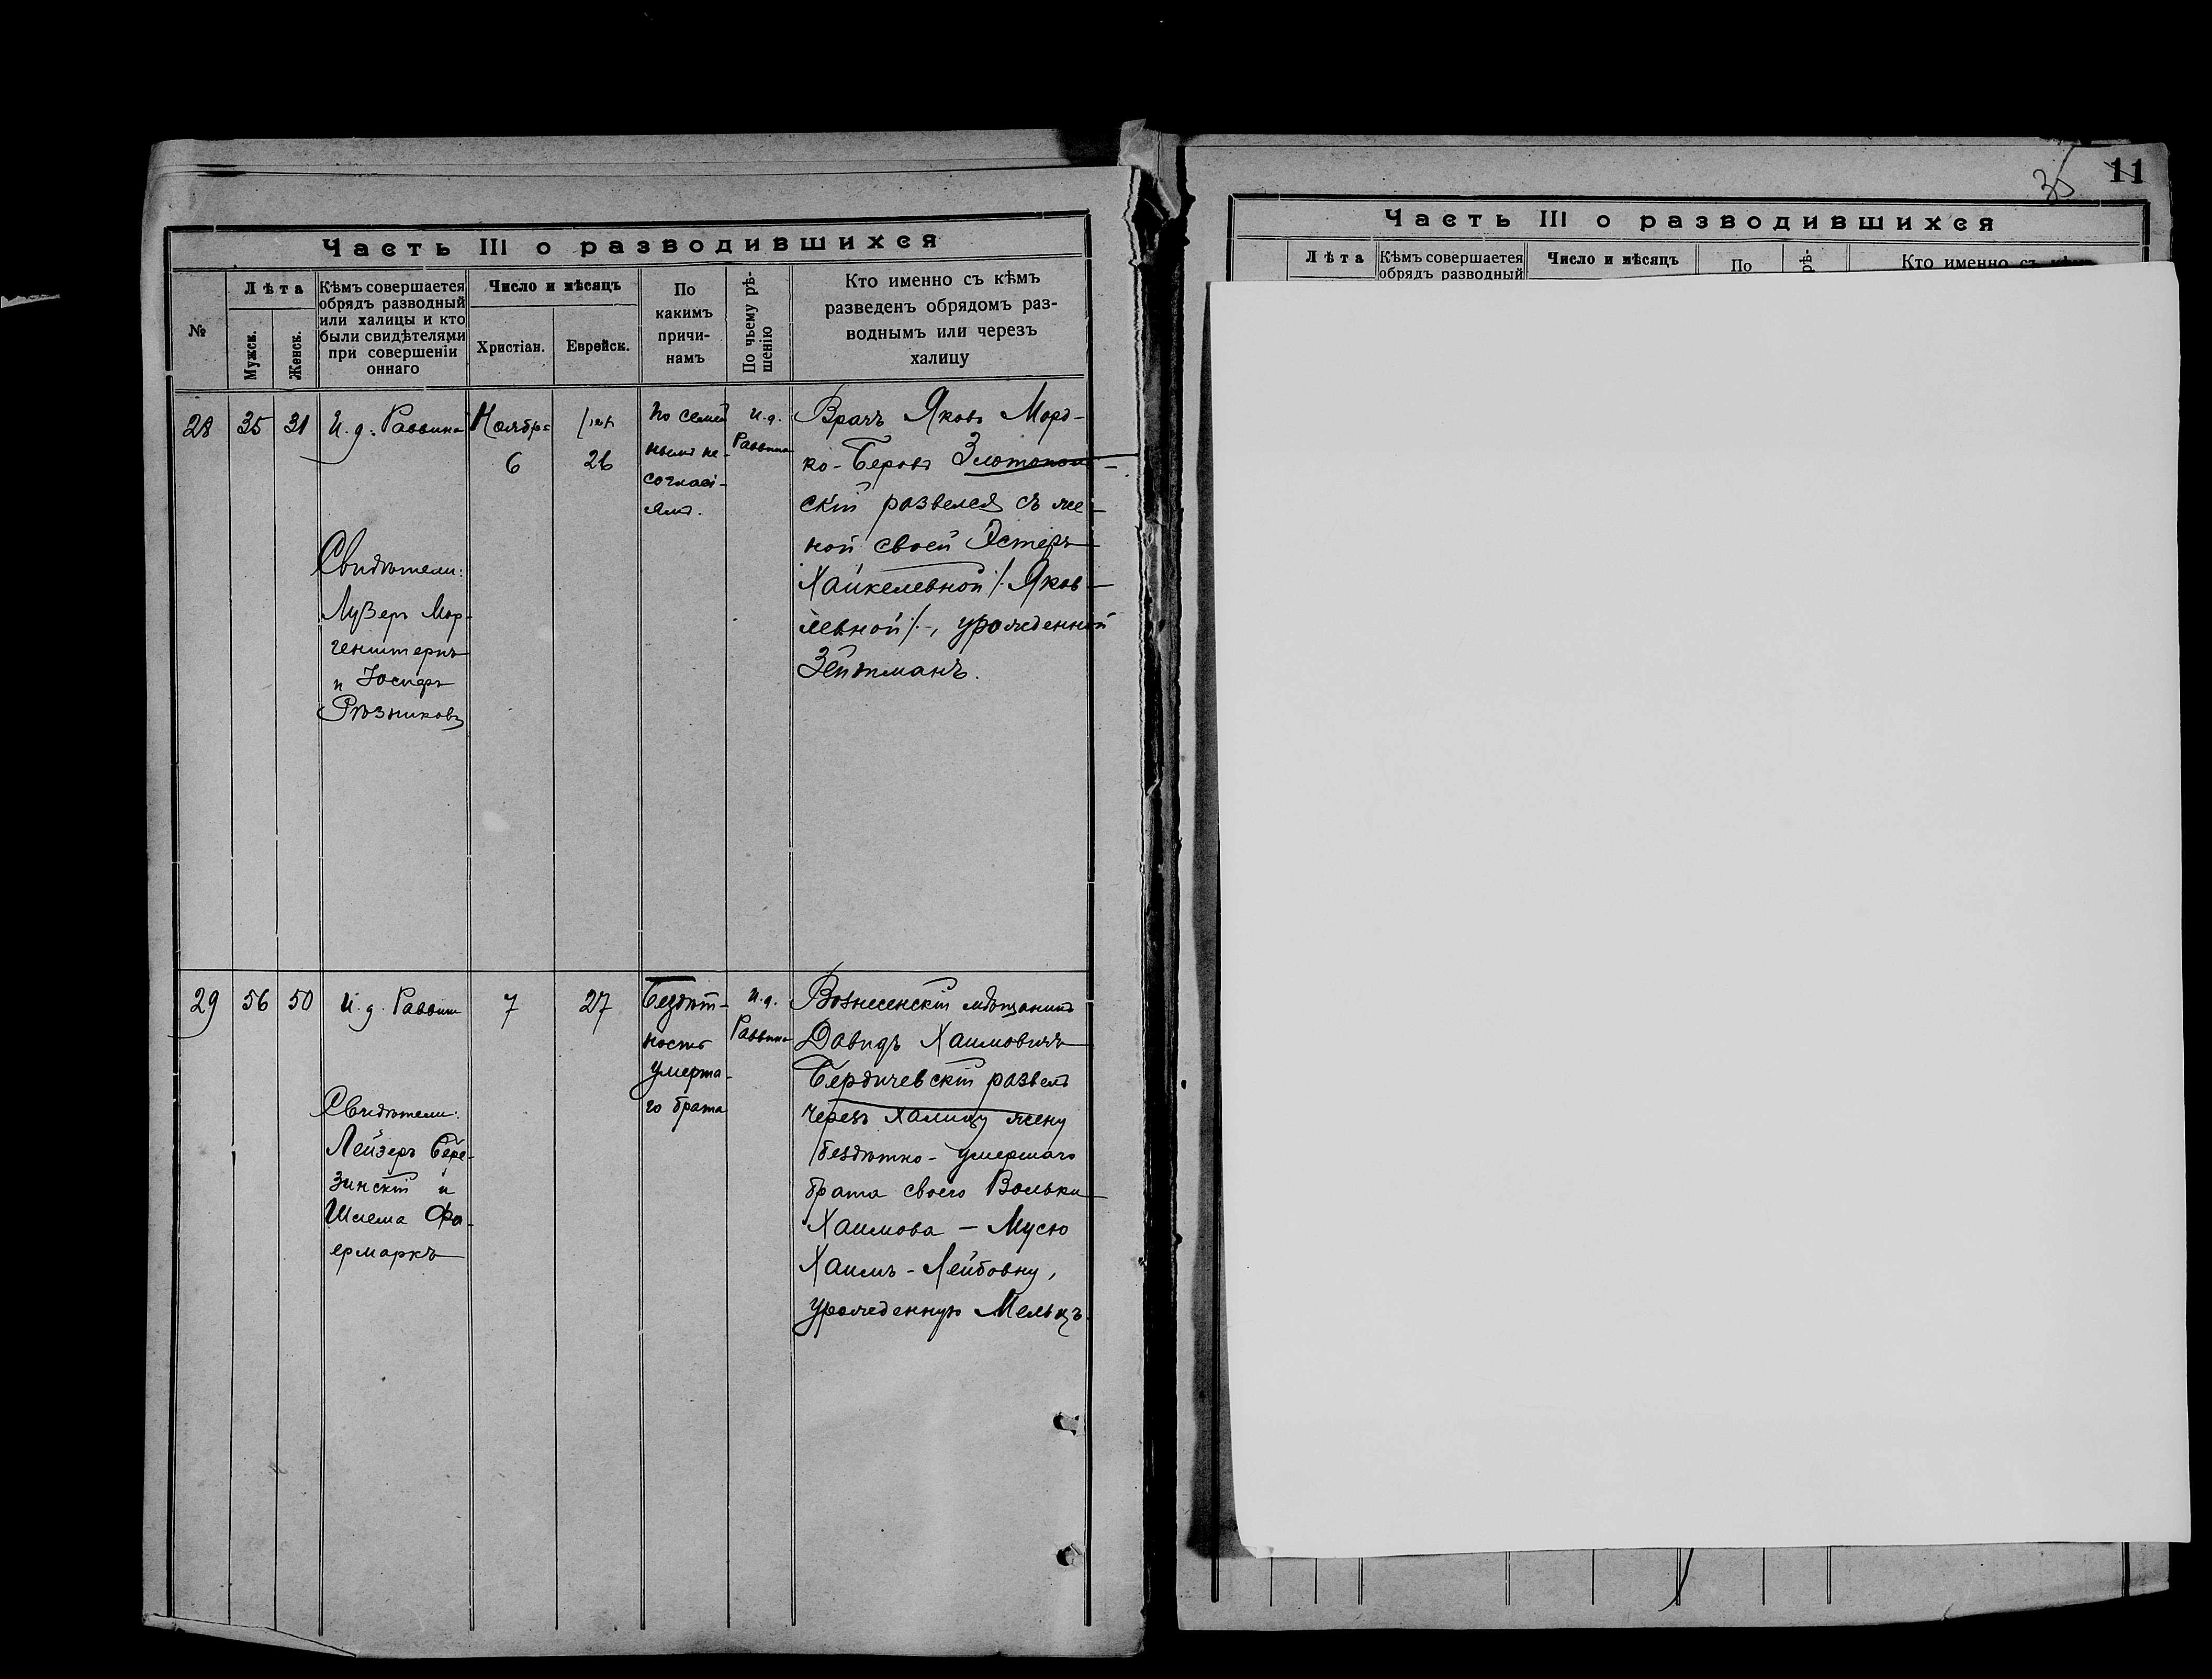 Часть III о разводившихся
№
Лѣта
Мужск.
Женск.
Кѣмъ совершается
обрядъ разводный
или халицы и кто
были свидѣтелями
при совершеніи
оннаго
Число и мѣсяцъ
Христіан.
Еврейск.
По
какимъ
причи-
намъ
По чьему рѣ-
шенію
Кто именно съ кѣмъ
разведенъ обрядомъ раз-
воднымъ или черезъ
халицу
28
35
31
И. д. Раввина
Свидѣтели:
Лузеръ Мор-
генштернъ
и Іосифъ
Рѣзниковъ
Ноябрь
6
26
По семей
нымъ не-
согласі-
ямъ.
И.д.
Раввина
Врачъ Яковъ Морд-
ко-Беровъ Злотополь-
скій развелся съ же-
ной своей Эстеръ
Хайкелевной /. Яков-
левной /., урожденной
Зейтманъ.
29
56
50
И. д. Раввин
Свидѣтели:
Лейзеръ Бере-
зинскій и
Шлема Фа-
ермаркъ
7
27
Бездѣт-
ность
умерша-
го брата
И.д.
Раввина
Вознесенскій мѣщанинъ
Давидъ Хаимовичъ
Бердичевскій развелъ
черезъ халицу жену
бездѣтно-умершаго
брата своего Вольки
Хаимова - Мусю
Хаимъ-Лейбовну,
урожденную Мельцъ.
35
11
Часть III о разводившихся
Лѣта
Кѣмъ совершается
обрядъ разводный
Число и мѣсяцъ
По
рѣ-
Кто именно съ кѣмъ